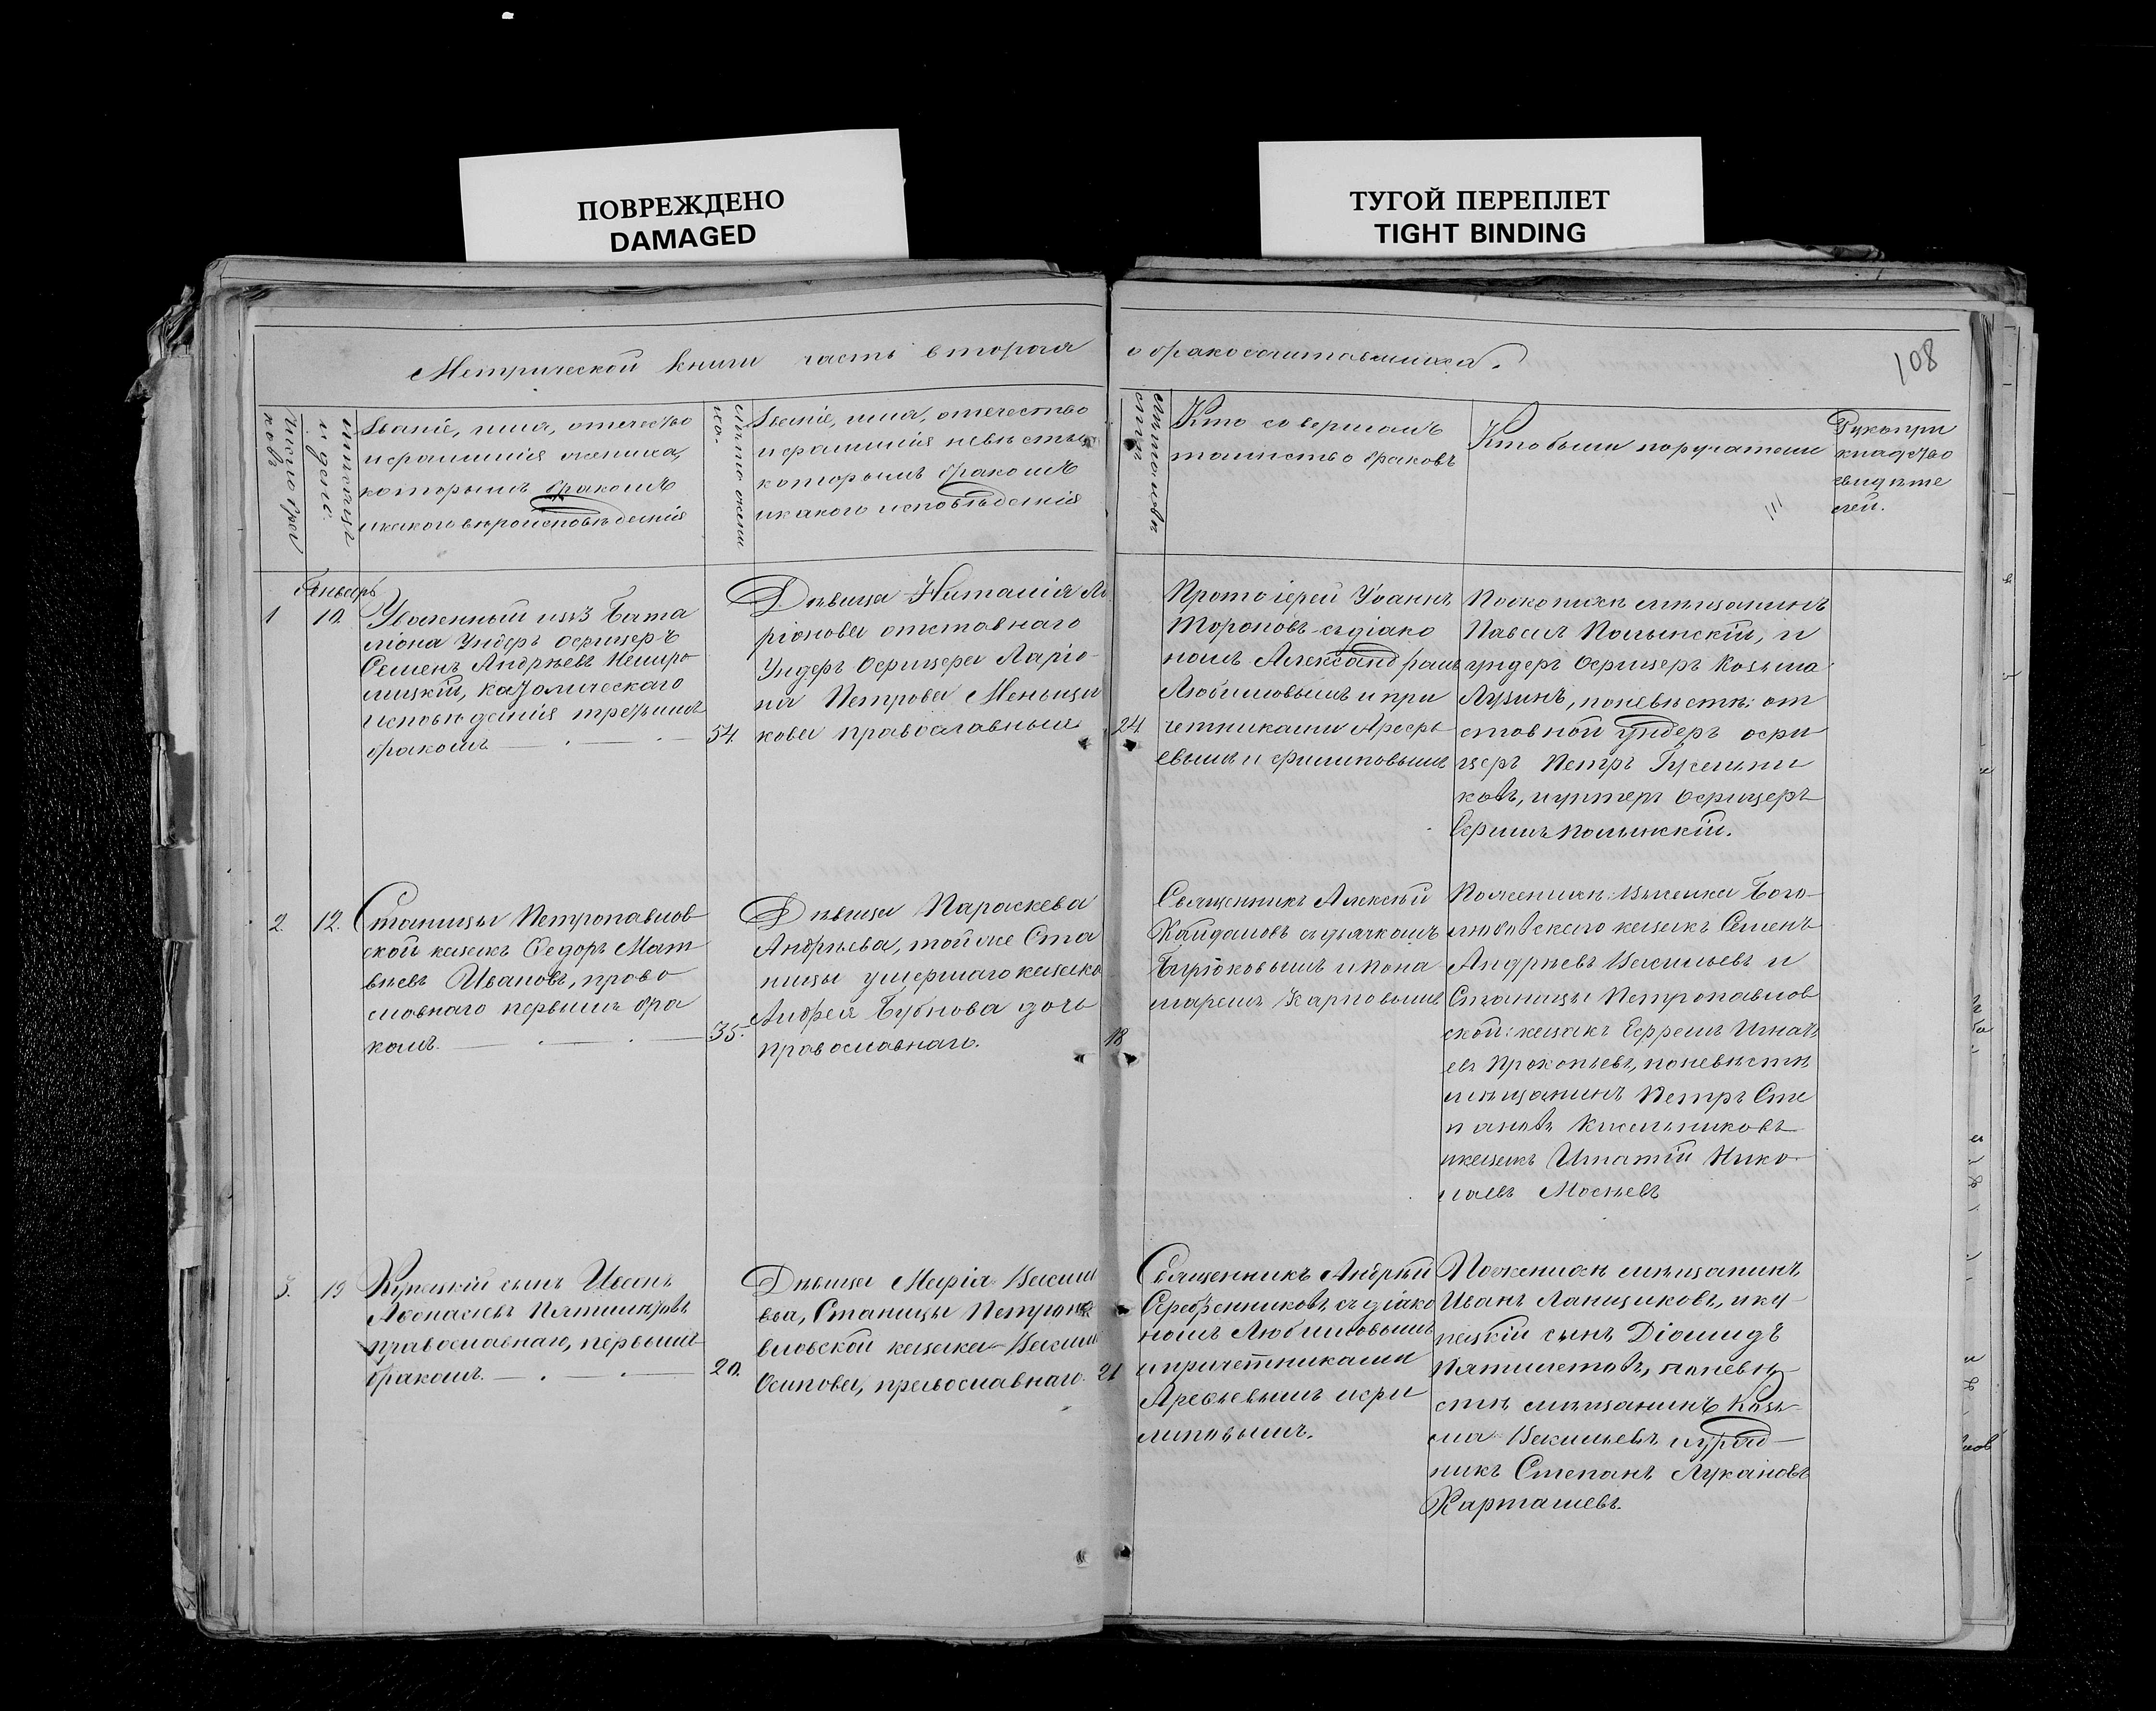 ПОВРЕЖДЕНО
DAMAGED
ТУГОЙ ПЕРЕПЛЕТ
TIGHT BINDING
Метрической книги часть вторая о бракосочитавшихся.
108
Число бра
ковъ
мѣсяцъ
и день.
Званіе, имя, отечество
и фамилія жениха,
которымъ бракомъ
и какого вѣроисповѣданія
лѣта жени
ха.
Званіе, имя, отечество
и фамилія невѣсты
которымъ бракомъ
и какого исповѣданія
Кто совершалъ
таинство браковъ
Кто были поручатели
Рукопри
кладство
свидѣте
лей.
Январь
1
10.
Уволенный изъ Бата
ліона Ундеръ Офицеръ
Семенъ Андрѣевъ
католическаго
исповѣданія третьимъ
бракомъ
54.
Дѣвица Наталія Ла
ріонова отставнаго
Ундеръ Офицера Ларіо
на Петрова Меньщи
кова православныя
24
Протоіерей Іоаннъ
Тороповъ съ діако
номъ Александромъ
Любимовымъ и при
четниками Арефь
евымъ и Филиповымъ
По женихѣ мѣщанинъ
Павелъ Полынскій, и
ундеръ Офицеръ Козьма
Лузинъ, по невѣстѣ: от
ставной ундеръ офи
церъ Петръ
ковъ, и унтеръ Офицеръ
Полынскій.
2.
12.
Станицы Петропавлов
ской казакъ Федоръ Мат
вѣевъ Ивановъ, право
славнаго первымъ бра
комъ.
35.
Дѣвица Параскева
Андрѣева, той же Ста
ницы умершаго казака
Андрея Бубнова дочь
православнаго.
18
Священникъ Алексѣй
Кайдаловъ съ дьячкомъ
Бирюковымъ и пона
маремъ Карповымъ
По женихѣ: Выселка Бого-
любовскаго казакъ Семенъ
Андрѣевъ Васильевъ и
Станицы Петропавлов
ской: казакъ Ефремъ Игнать
евъ Прокопьевъ, по невѣстѣ
мѣщанинъ Петръ Сте
пановъ Кисельниковъ
и казакъ Игнатій Нико-
лаевъ Мосѣевъ
3.
19
Купецкій сынъ Иванъ
Афонасьевъ Пятилѣтовъ
православнаго, первымъ
бракомъ.
20.
Дѣвица Марія Васили
ева, Станицы Петропа
вловской казака Васили
Осипова, православнаго.
21
Священникъ Андрѣй
Серебренниковъ, съ діако
номъ Любимовымъ
и причетниками
Арефьевымъ и Фи
липовымъ.
По женихѣ мѣщанинъ
Иванъ Ланщиковъ, и ку-
пецкій сынъ Діомидъ
Пятилетовъ, по невѣ
стѣ мѣщанинъ Козь
ма Васильевъ и уряд
никъ Степанъ Лукановъ
Карташевъ.